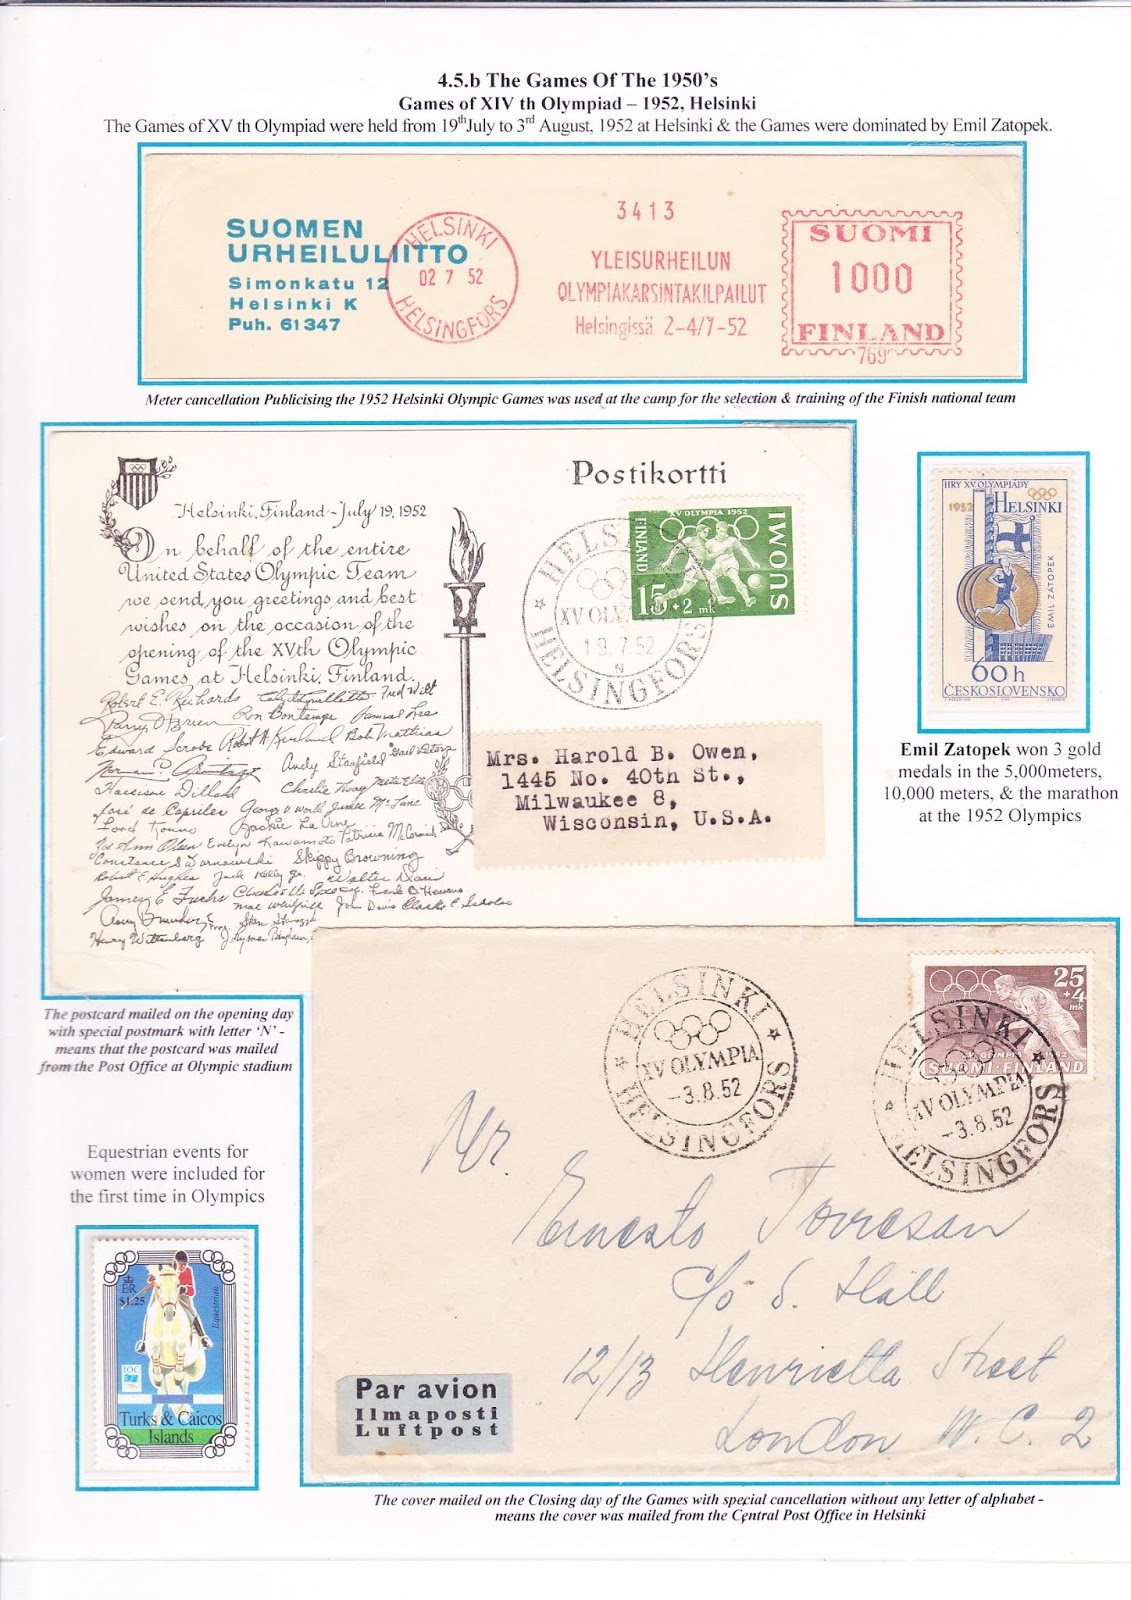 4.5.b The Games Of The 1950's
Games of XIV th Olympiad – 1952, Helsinki
The Games of XV th Olympiad were held from 19th July to 3rd August, 1952 at Helsinki & the Games were dominated by Emil Zatopek.
SUOMEN
URHEILULIITTO
Simonkatu 12
Helsinki K
Puh. 61347
HELSINKI
02 7 52
HELSINGFORS
3413
YLEISURHEILUN
OLYMPIAKARSINTAKILPAILUT
Helsingissä 2-4/7-52
SUOMI
1000
FINLAND
769
Meter cancellation Publicising the 1952 Helsinki Olympic Games was used at the camp for the selection & training of the Finish national team
Postikortti
Helsinki, Finland - July 19, 1952
On behalf of the entire
United States Olympic Team
we send you greetings and best
wishes on the occasion of the
opening of the XVth Olympic
Games at Helsinki, Finland.
Robert E. Richards Fred Wilt
Parry O'Brien Ron Bontemps Samuel Lee
Bob Mathias
Andy Stanfield
Harrison Dillard Charlie Hoag
José de Capriles James McLane
Jackie La Vine
Jo Ann Olsen Evelyn Kawamoto Patricia McCormick
Skippy Browning
Robert E. Hughes Jack Kelly Jr. Walter Davis
James E. Fuchs
John Davis Clarke C. Scholes
Henry Wittenberg
HELSINKI
XV OLYMPIA
19.7.52
N
HELSINGFORS
XV OLYMPIA 1952
FINLAND
SUOMI
15 + 2 mk
Mrs. Harold B. Owen,
1445 No. 40th St.,
Milwaukee 8,
Wisconsin, U.S.A.
HRY XV OLYMPIÁDY
1952 HELSINKI
EMIL ZATOPEK
60 h
ČESKOSLOVENSKO
Emil Zatopek won 3 gold
medals in the 5,000meters,
10,000 meters, & the marathon
at the 1952 Olympics
The postcard mailed on the opening day
with special postmark with letter 'N' -
means that the postcard was mailed
from the Post Office at Olympic stadium
HELSINKI
XV OLYMPIA
-3.8.52
HELSINGFORS
25
+4
mk
XV OLYMPIA 1952
SUOMI · FINLAND
HELSINKI
XV OLYMPIA
-3.8.52
HELSINGFORS
Mr.
Ernesto Torresan
c/o S. Hall
12/13 Henrietta Street
London W.C.2
Par avion
Ilmaposti
Luftpost
Equestrian events for
women were included for
the first time in Olympics
E R
$1.25
Equestrian
IOC
Turks & Caicos
Islands
The cover mailed on the Closing day of the Games with special cancellation without any letter of alphabet -
means the cover was mailed from the Central Post Office in Helsinki